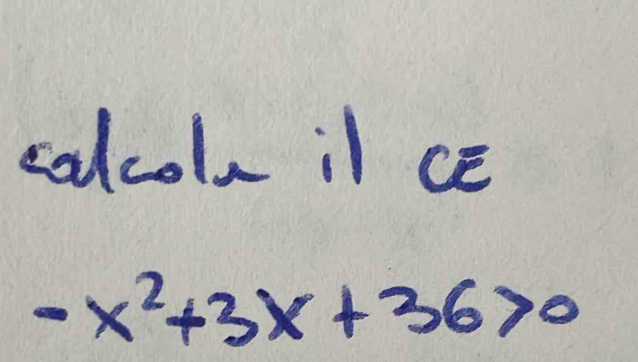 calcola il CE
-x²+3x+36>0